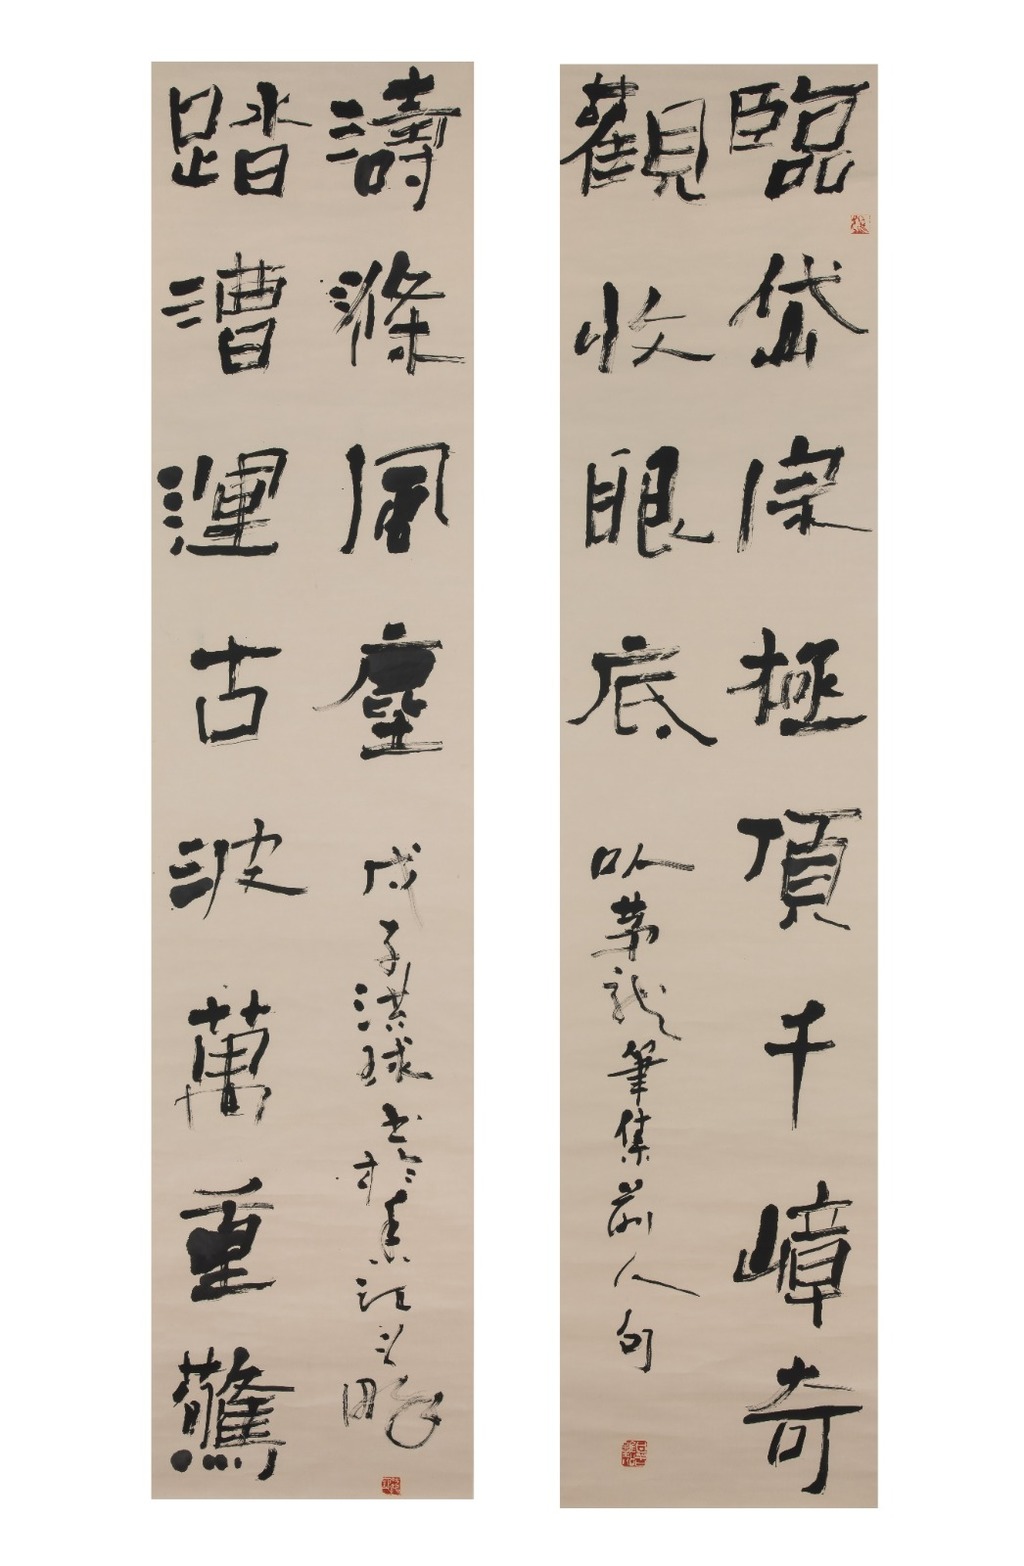 臨岱宗極頂千嶂奇
觀收眼底
以茅龍筆集前人句
踏漕運古波萬重驚
濤滌風塵
戊子洪球書於香江之畔